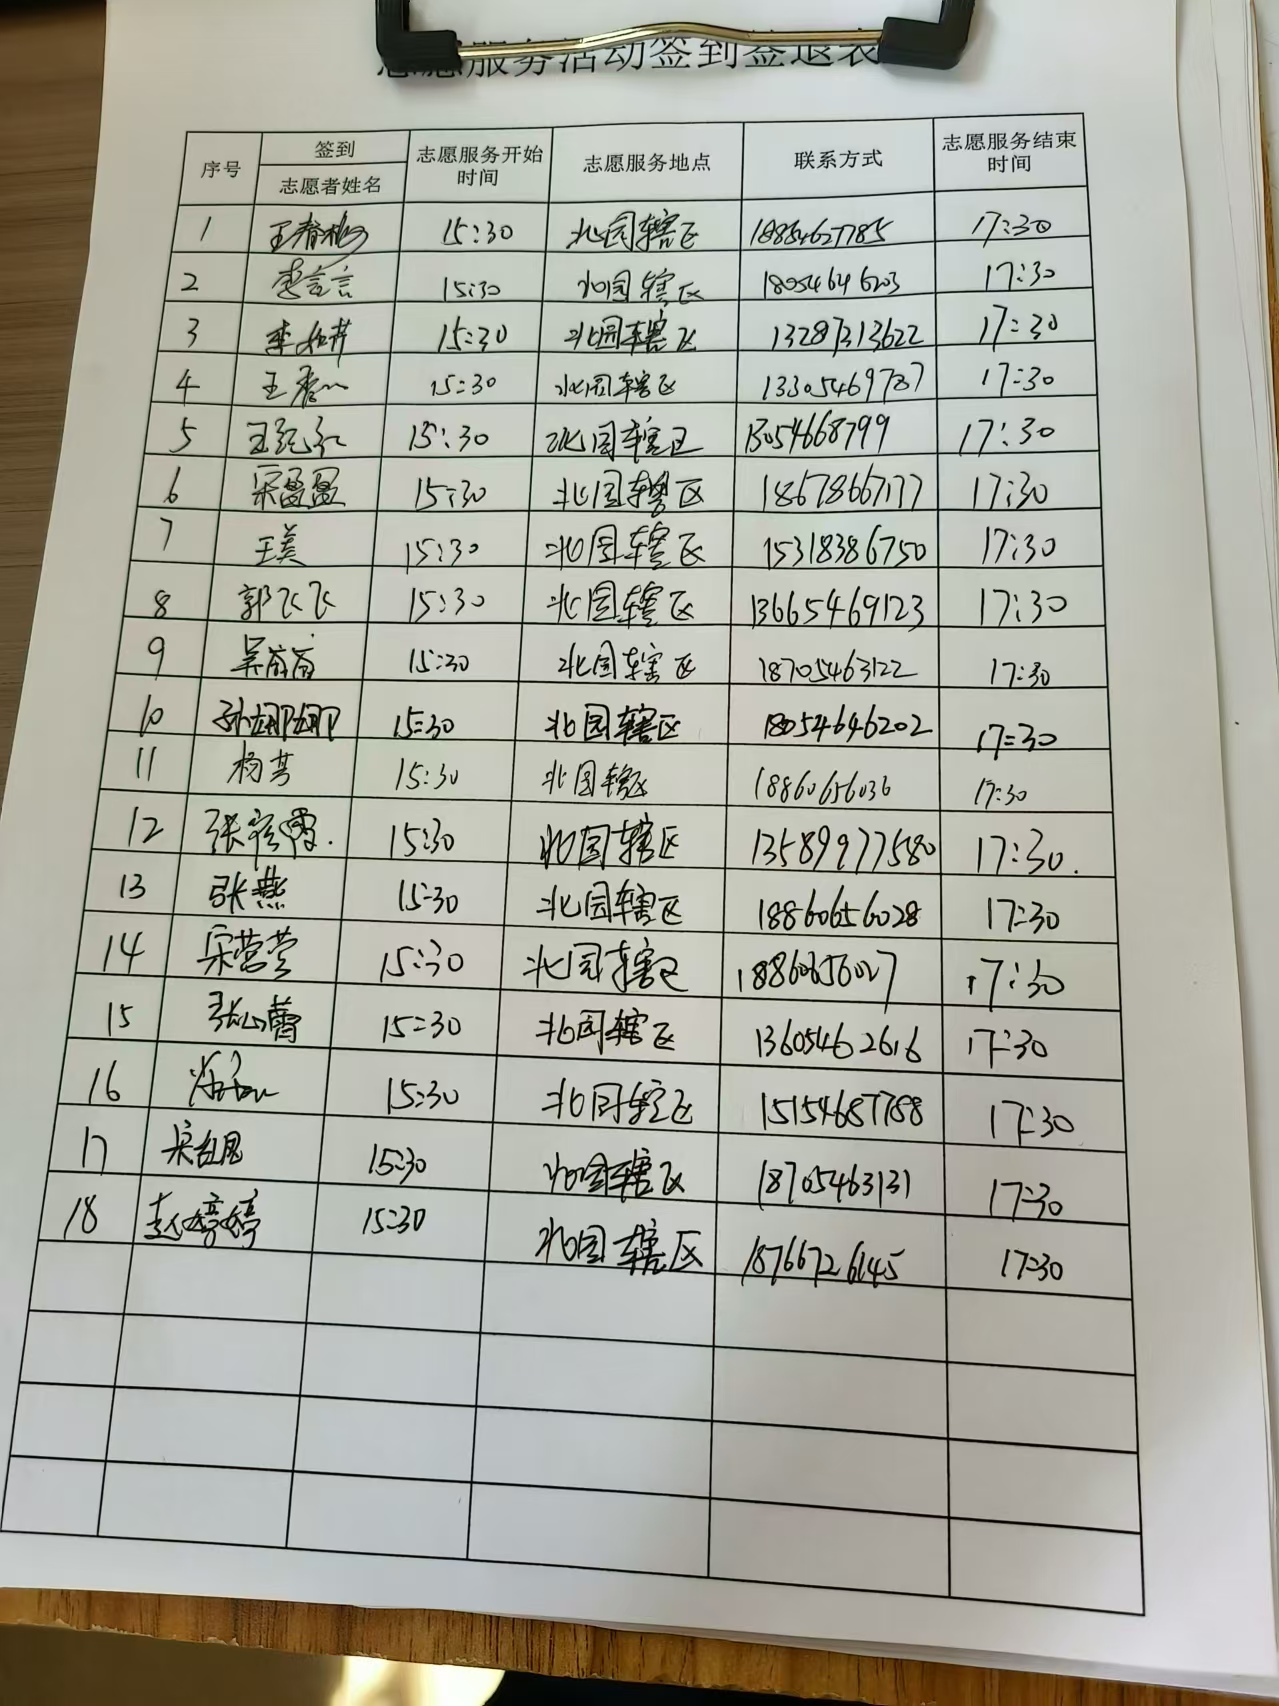 志愿服务活动签到签退表
序号 签到 志愿服务开始时间 志愿服务地点 联系方式 志愿服务结束时间
志愿者姓名
1 王春梅 15:30 北园辖区 18854627785 17:30
2 李言言 15:30 北园辖区 18054646203 17:30
3 李 15:30 北园辖区 13287313622 17:30
4 王 15:30 北园辖区 13305469787 17:30
5 王 15:30 北园辖区 13054668799 17:30
6 宋盈盈 15:30 北园辖区 18678667177 17:30
7 王美 15:30 北园辖区 15318386750 17:30
8 郭飞飞 15:30 北园辖区 13665469123 17:30
9 吴苗苗 15:30 北园辖区 18705463122 17:30
10 孙娜娜 15:30 北园辖区 18054646202 17:30
11 杨芳 15:30 北园辖区 18860656036 17:30
12 张 15:30 北园辖区 13589977580 17:30.
13 张燕 15:30 北园辖区 18860656028 17:30
14 宋营营 15:30 北园辖区 18860656027 17:30
15 张心蕾 15:30 北园辖区 13605462616 17:30
16 15:30 北园辖区 15154687788 17:30
17 宋 15:30 北园辖区 18705463131 17:30
18 赵婷婷 15:30 北园辖区 18766726145 17:30